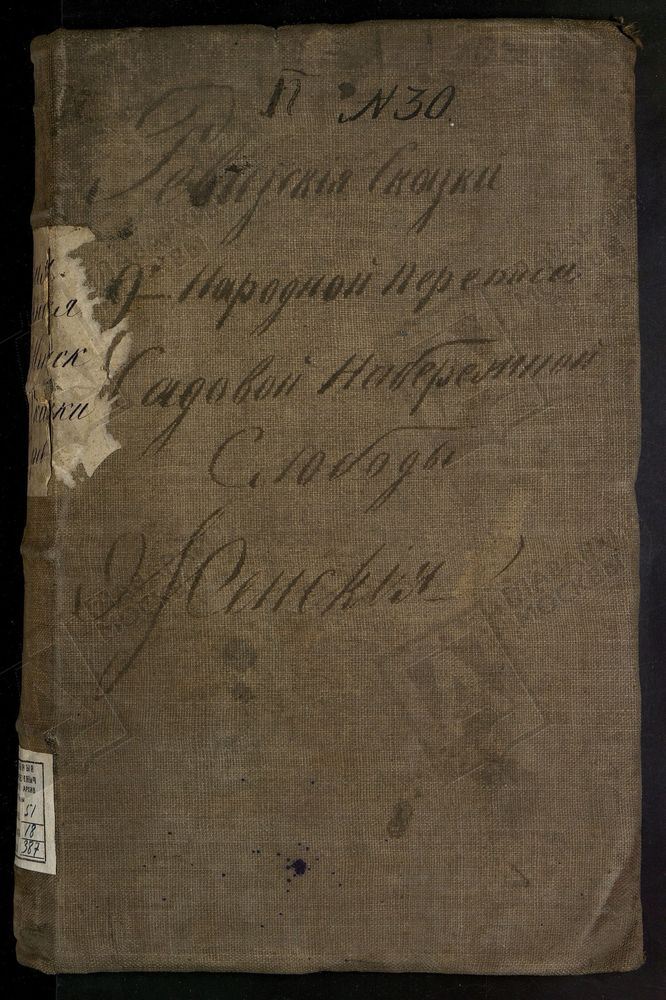 П N 30
Ревизскія Сказки
9й Народной Переписи
Садовой Набережной
Слободы
Женскія
51
18
387